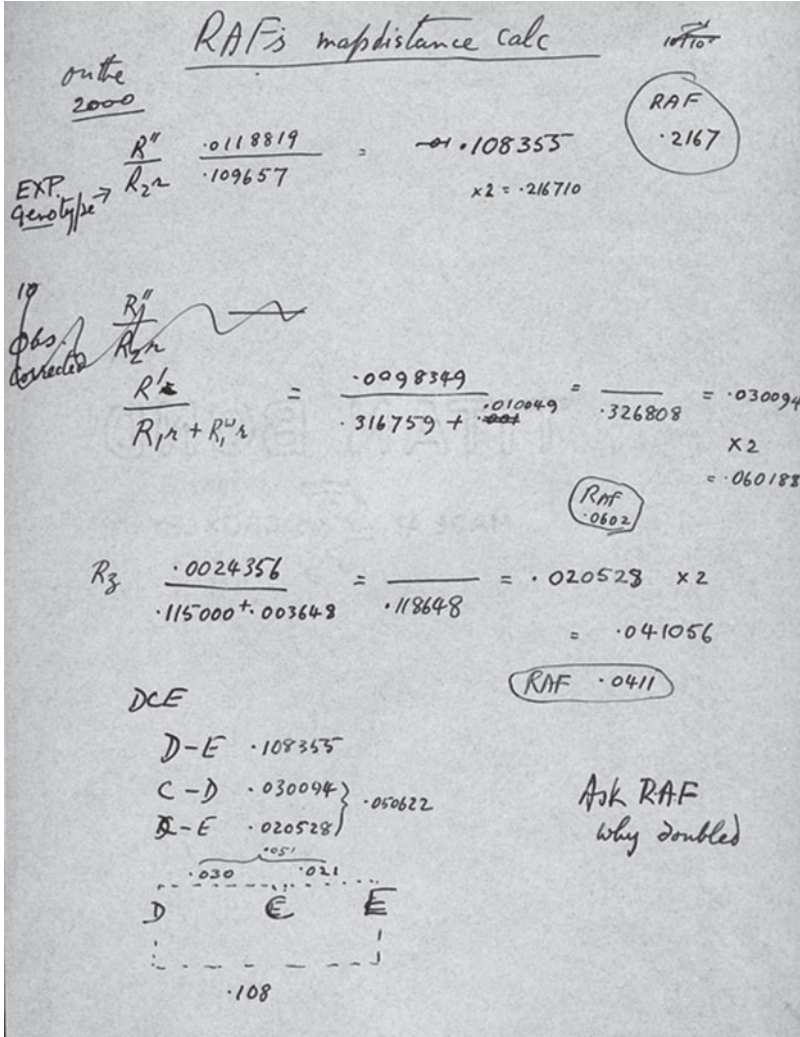 RAF's map distance calc
on the
2000
RAF
.2167
EXP.
Genotype →
R''
R₂r
.0118819
.109657
=
.108355
×2 = .216710
Obs.
Corrected
R''
R₂r
R'
R₁r + R₁ʷr
=
.0098349
.316759 + .010049
=
.326808
= .030094
×2
= .060188
RAF
.0602
Rz
.0024356
.115000 + .003648
=
.118648
= .020528 ×2
= .041056
RAF .0411
DCE
D-E .108355
C-D .030094
C-E .020528
} .050622
.051
.030 .021
D C E
.108
Ask RAF
why doubled